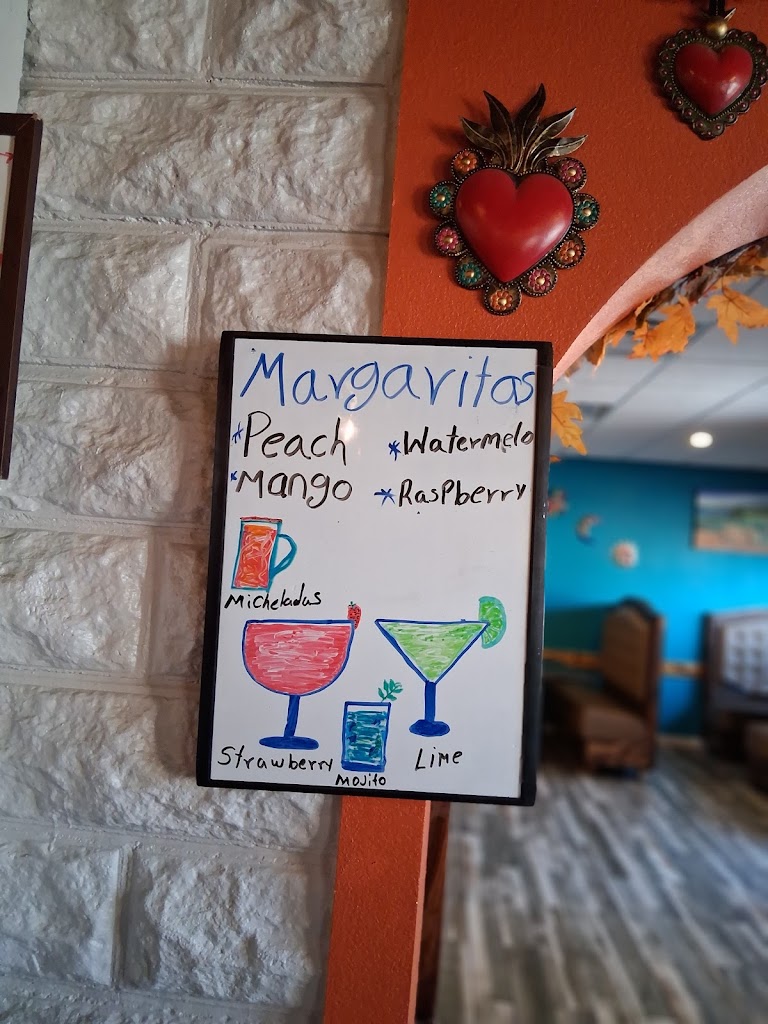 Margaritas
*Peach *Watermelo
*Mango *Raspberry
Micheladas
Strawberry
Mojito
Lime